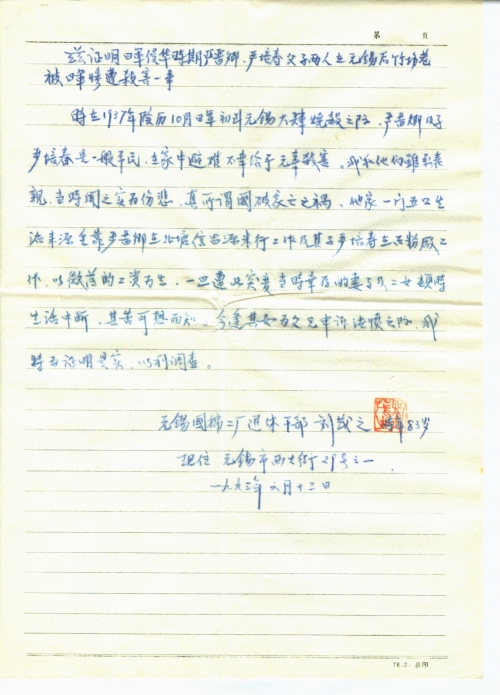 第 页
兹证明日军侵华时期严晋卿、严培春父子两人在无锡后竹场巷
被日军惨遭杀害一事
时在1937年阴历10月日军初到无锡大肆烧杀之际,严晋卿及子
严培春是一般平民,在家中避难不幸惨于无辜杀害。我和他们虽系表
亲,当时闻之实为伤悲,真所谓国破家亡之祸。他家一门五口生
活来源全靠严晋卿在北塘信昌源米行工作及其子严培春在面粉厂工
作,以微薄的工资为生,一旦遭此突变当时幸存的妻子及二女顿时
生活中断,其苦可想而知。今逢其如女兄申诉法愤之际,我
特为证明是实,以利调查。
无锡国棉二厂退休干部 刘茂之 时年83岁
现住 无锡市西大街29号之一
一九九三年六月十三日
76.2.